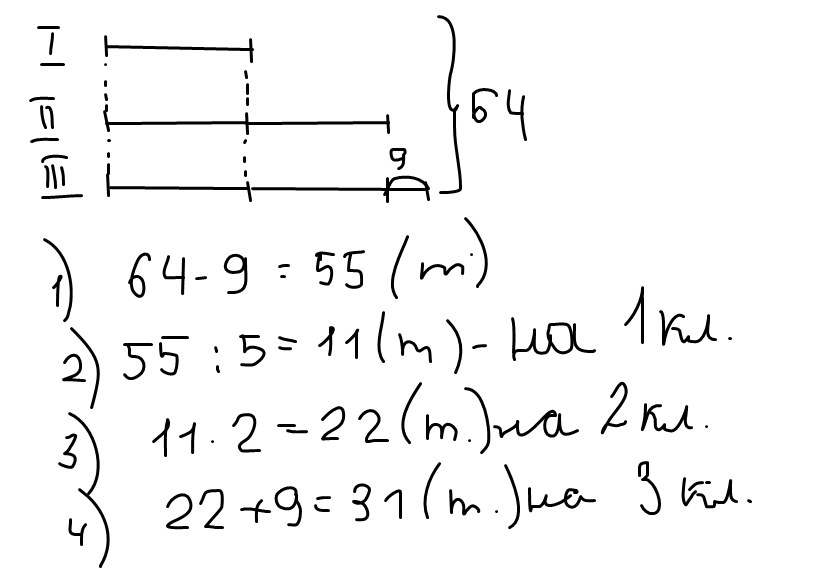 I
II
64
9
III
1) 64 - 9 = 55 (т)
2) 55 : 5 = 11 (т) - на 1 кл.
3) 11 . 2 = 22 (т.) на 2 кл.
4) 22 + 9 = 31 (т.) на 3 кл.